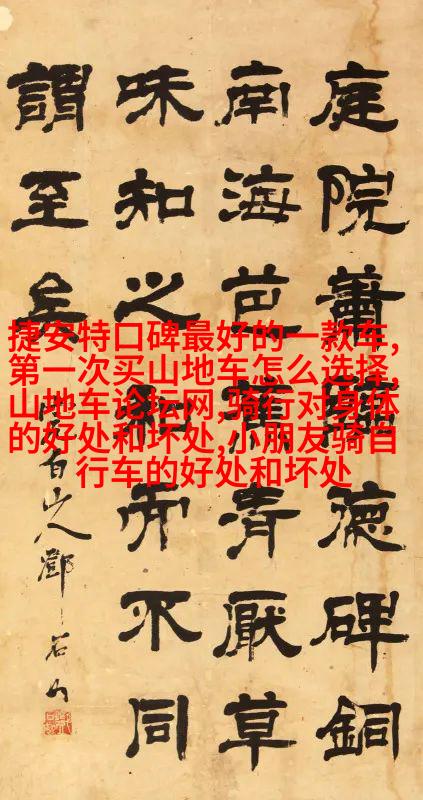 庭院蕭德碑銅
南海芭蕉青厭草
味知之和而不同
謂至矣
完白山人鄧石如
捷安特口碑最好的一款车,
第一次买山地车怎么选择,
山地车论坛网,骑行对身体
的好处和坏处,小朋友骑自
行车的好处和坏处